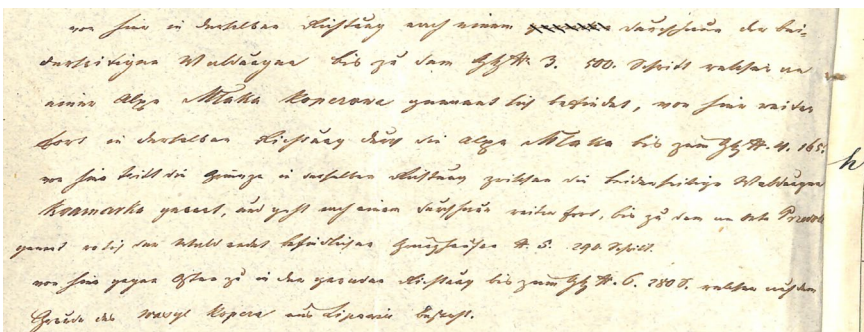 von hier in derselben Richtung nach einem Durchhaue der bei-
derseitigen Waldungen bis zu dem № 3. 500. Schritt welcher an
einer Alpe Mlaka Koperowa genannt sich befindet, von hier weiter
fort in derselben Richtung durch die Alpe Mlaka bis zum № 4. 165.
von hier tritt die Gränze in derselben Richtung zwischen die beiderseitige Waldungen
genannt, und geht nach einem Durchhaue weiter fort, bis zu dem am Orte
genannt wo sich der Wald endet befindlichen Gränzhaufen № 5. 290. Schritt.
von hier gegen Osten zu in der geraden Richtung bis zum № 6. 280 S. welcher auf dem
Grunde des Wasyl Kopera aus besteht.
h